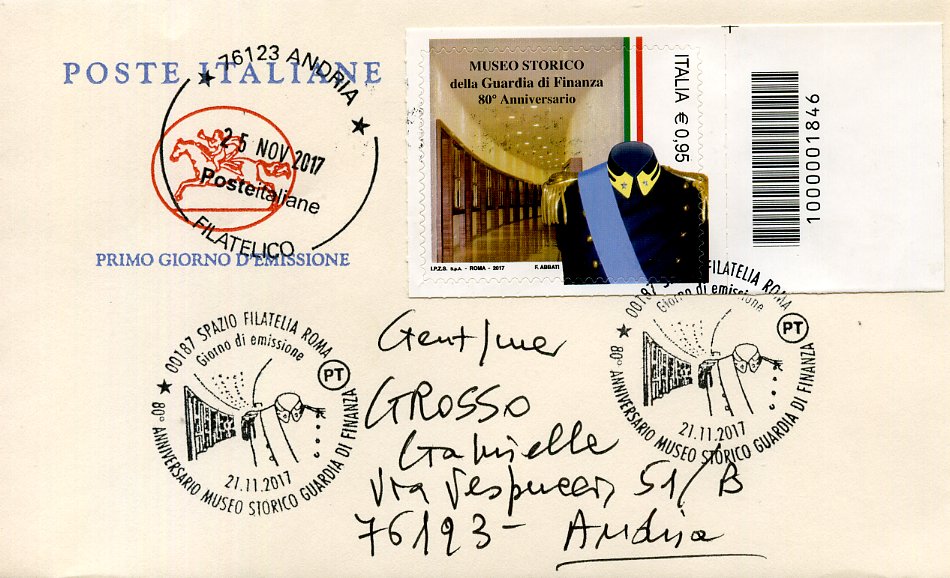 POSTE ITALIANE
76123 ANDRIA
25 NOV 2017
Posteitaliane
FILATELICO
PRIMO GIORNO D'EMISSIONE
MUSEO STORICO
della Guardia di Finanza
80° Anniversario
ITALIA € 0,95
I.P.Z.S. S.p.A. - ROMA - 2017 F. ABBATI
1000001846
00187 SPAZIO FILATELIA ROMA
Giorno di emissione
PT
21.11.2017
80° ANNIVERSARIO MUSEO STORICO GUARDIA DI FINANZA
00187 FILATELIA ROMA
Giorno di emissione
PT
21.11.2017
80° ANNIVERSARIO MUSEO STORICO GUARDIA DI FINANZA
GROSSO
Gabrielle
Via Vespucci, 51/B
76123 - Andria